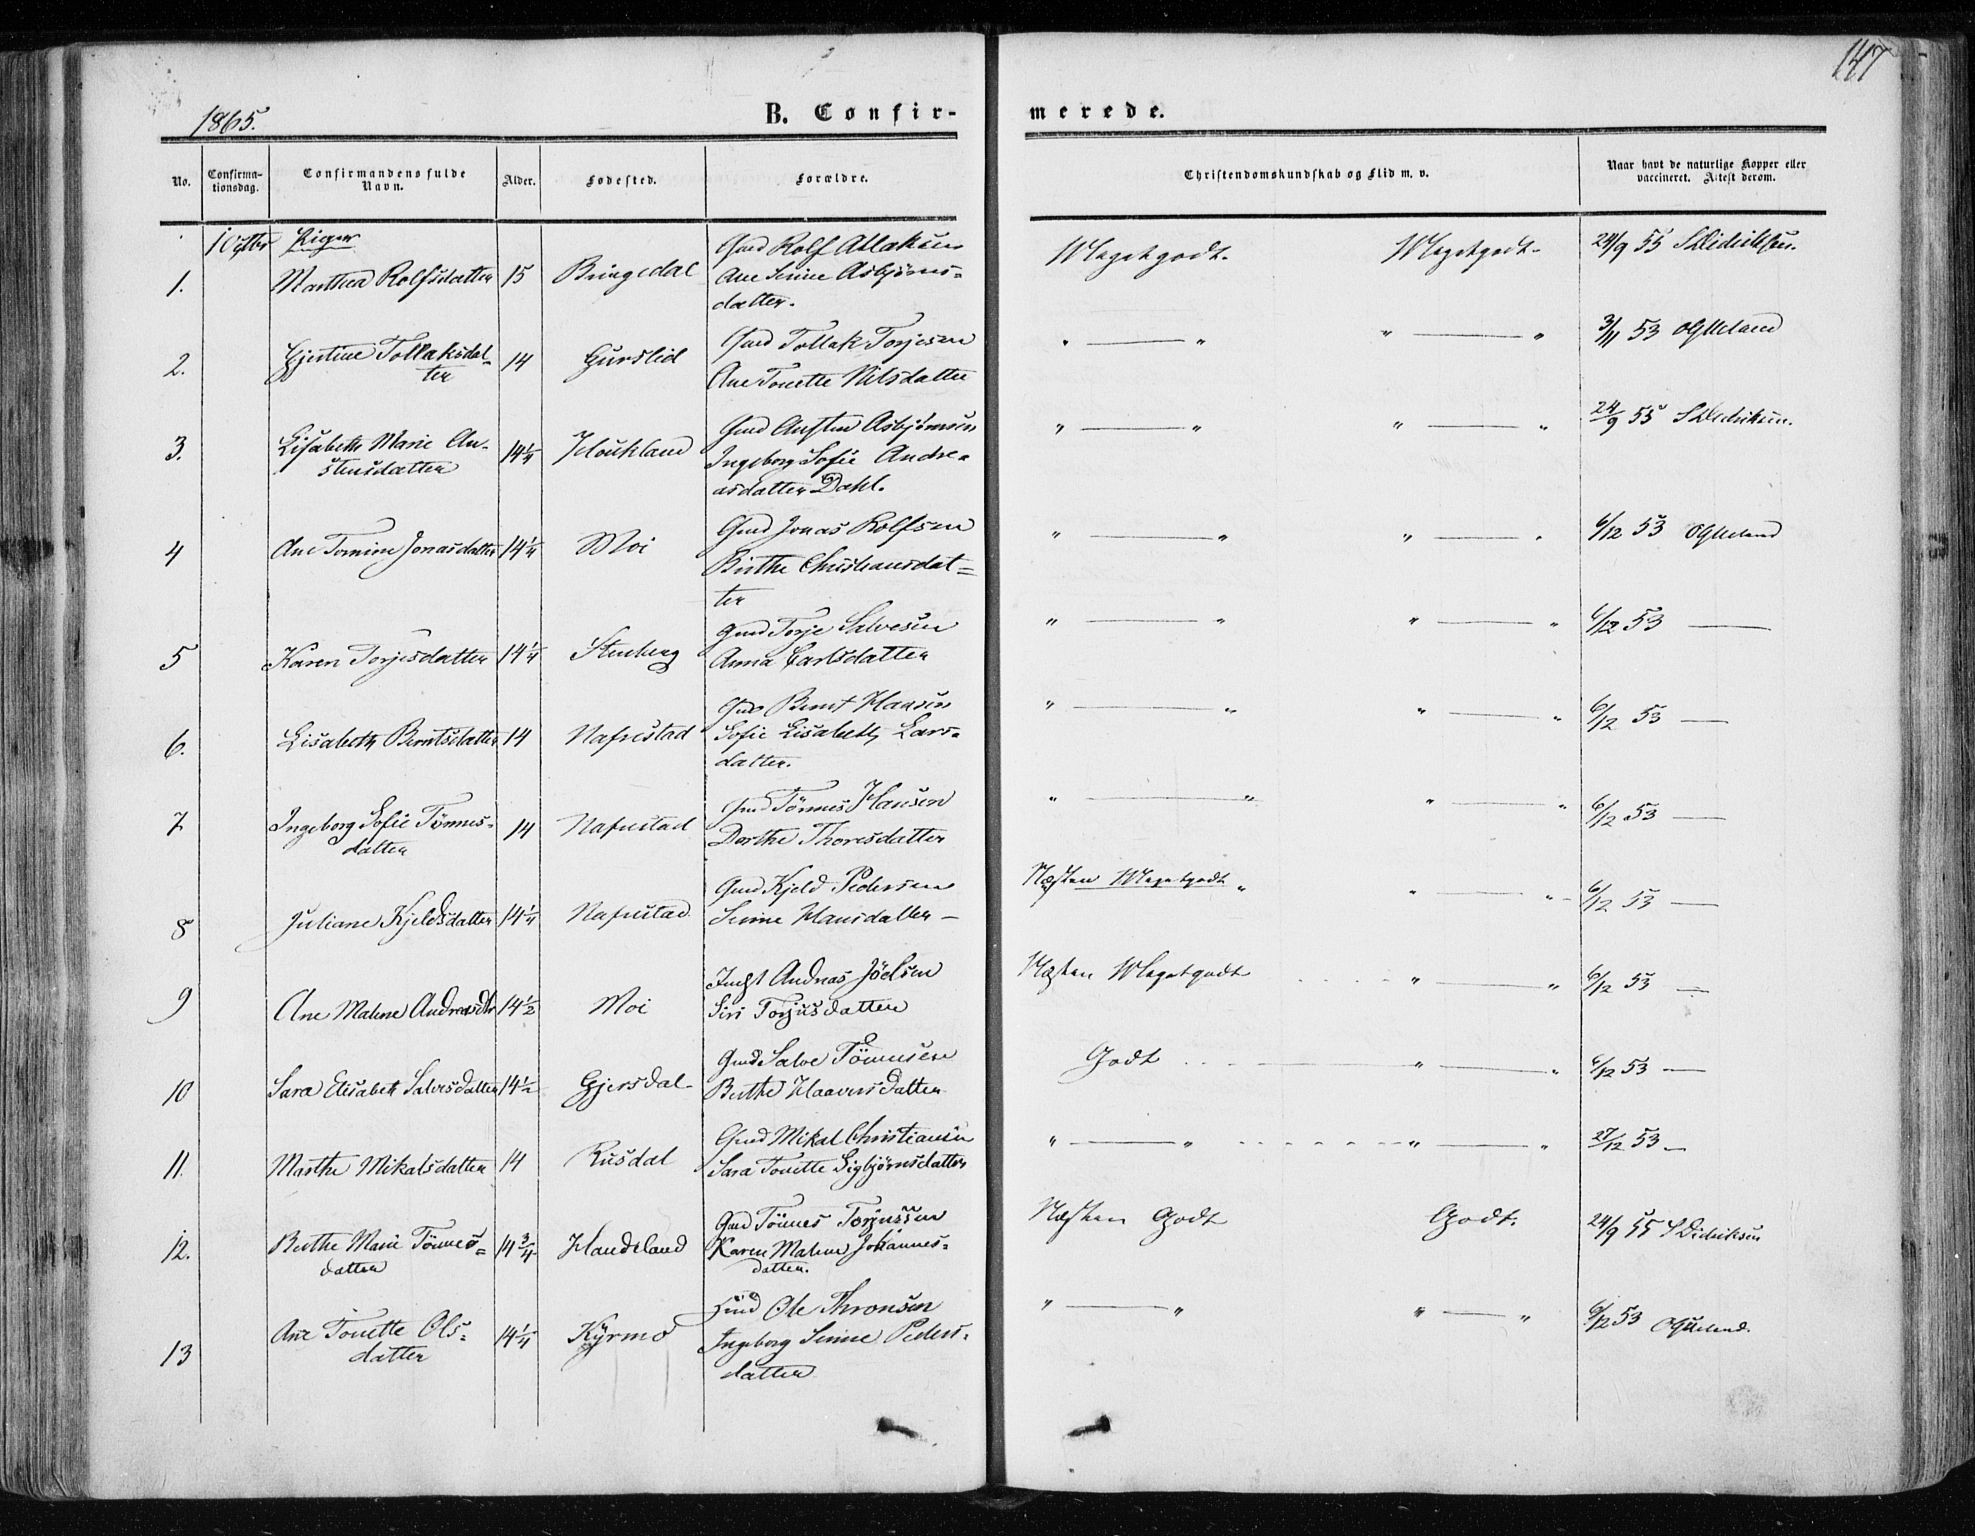 147
1865.
B. Confir-
merede.
No.
Confirma-
tionsdag.
Confirmandens fulde
Navn.
Alder.
Fødested.
Forældre.
Christendomskundskab og Flid m. v.
Naar havt de naturlige Kopper eller
vaccineret. Attest derom.
Piger
1. Marthea Rolfsdatter 15 Bringedal
Gmd Rolf Atlaksen
Ane Serine Asbjørns=
datter.
Megetgodt. Megetgodt. 24/9 55 S Didriksen.
2. Gjertine Tollaksdat-
ter
14 Gurslid
Gmd Tollak Torjesen
Ane Tonette Nilsdatter
" — " " — " 3/11 53
3. Lisabeth Marie Au-
stensdatter
14 1/4 Houkland
Gmd Austen Asbjørnsen
Ingeborg Sofie Andre-
asdatter Dahl.
" — " " — " 24/9 55 S Didriksen.
4 Ane Tomine Jonasdatter 14 1/4 Moi
Gmd Jonas Rolfsen
Birthe Christiansdat=
ter
" — " " — " 6/12 53
5 Karen Torjesdatter 14 1/4 Stenberg
Gmd Torje Salvesen
Anna Carlsdatter
" — " " — " 6/12 53 —
6. Lisabeth Berntsdatter 14 Nafustad
Gmd Bernt Hansen
Sofie Lisabeth Lars-
datter.
" — " " — " 6/12 53 —
7 Ingeborg Sofie Tønnes-
datter
14 Nafustad
Gmd Tønnes Hansen
Dorthe Thoresdatter
" — " " — " 6/12 53 —
8 Juliane Kjeldsdatter 14 1/4 Nafustad
Gmd Kjeld Pedersen
Serine Hansdatter —
Næsten Megetgodt " " — " 6/12 53 —
9 Ane Malene Andreasdtr 14 1/2 Moi
Andreas Jöelsen
Siri Torjusdatter
Næsten Megetgodt " — " 6/12 53 —
10 Sara Elisabeth Salvesdatter 14 1/2 Gjersdal
Gmd Salve Tönnesen
Berthe Haaversdatter
Godt " — " 6/12 53 —
11. Marthe Mikalsdatter 14 Rusdal
Gmd Mikal Christiansen
Sara Tonette Sigbjørnsdatter
" — " " — " 27/12 53 —
12. Berthe Marie Tønnes=
datter
14 3/4 Haudeland
Gmd Tönnes Torjussen
Karen Malene Johannes-
datter.
Næsten Godt Godt. 24/9 55 S Didriksen
13 Ane Tonette Ols-
datter
14 1/4 Kyrmo
Gmd Ole Thronsen
Ingeborg Serine Peders-
datter
" — " " — " 6/12 53